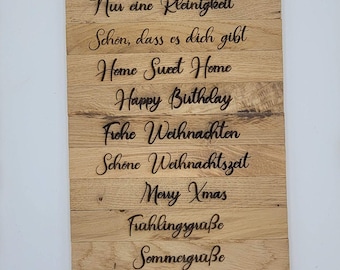 Nur eine Kleinigkeit
Schön, dass es dich gibt
Home Sweet Home
Happy Birthday
Frohe Weihnachten
Schöne Weihnachtszeit
Merry Xmas
Frühlingsgrüße
Sommergrüße